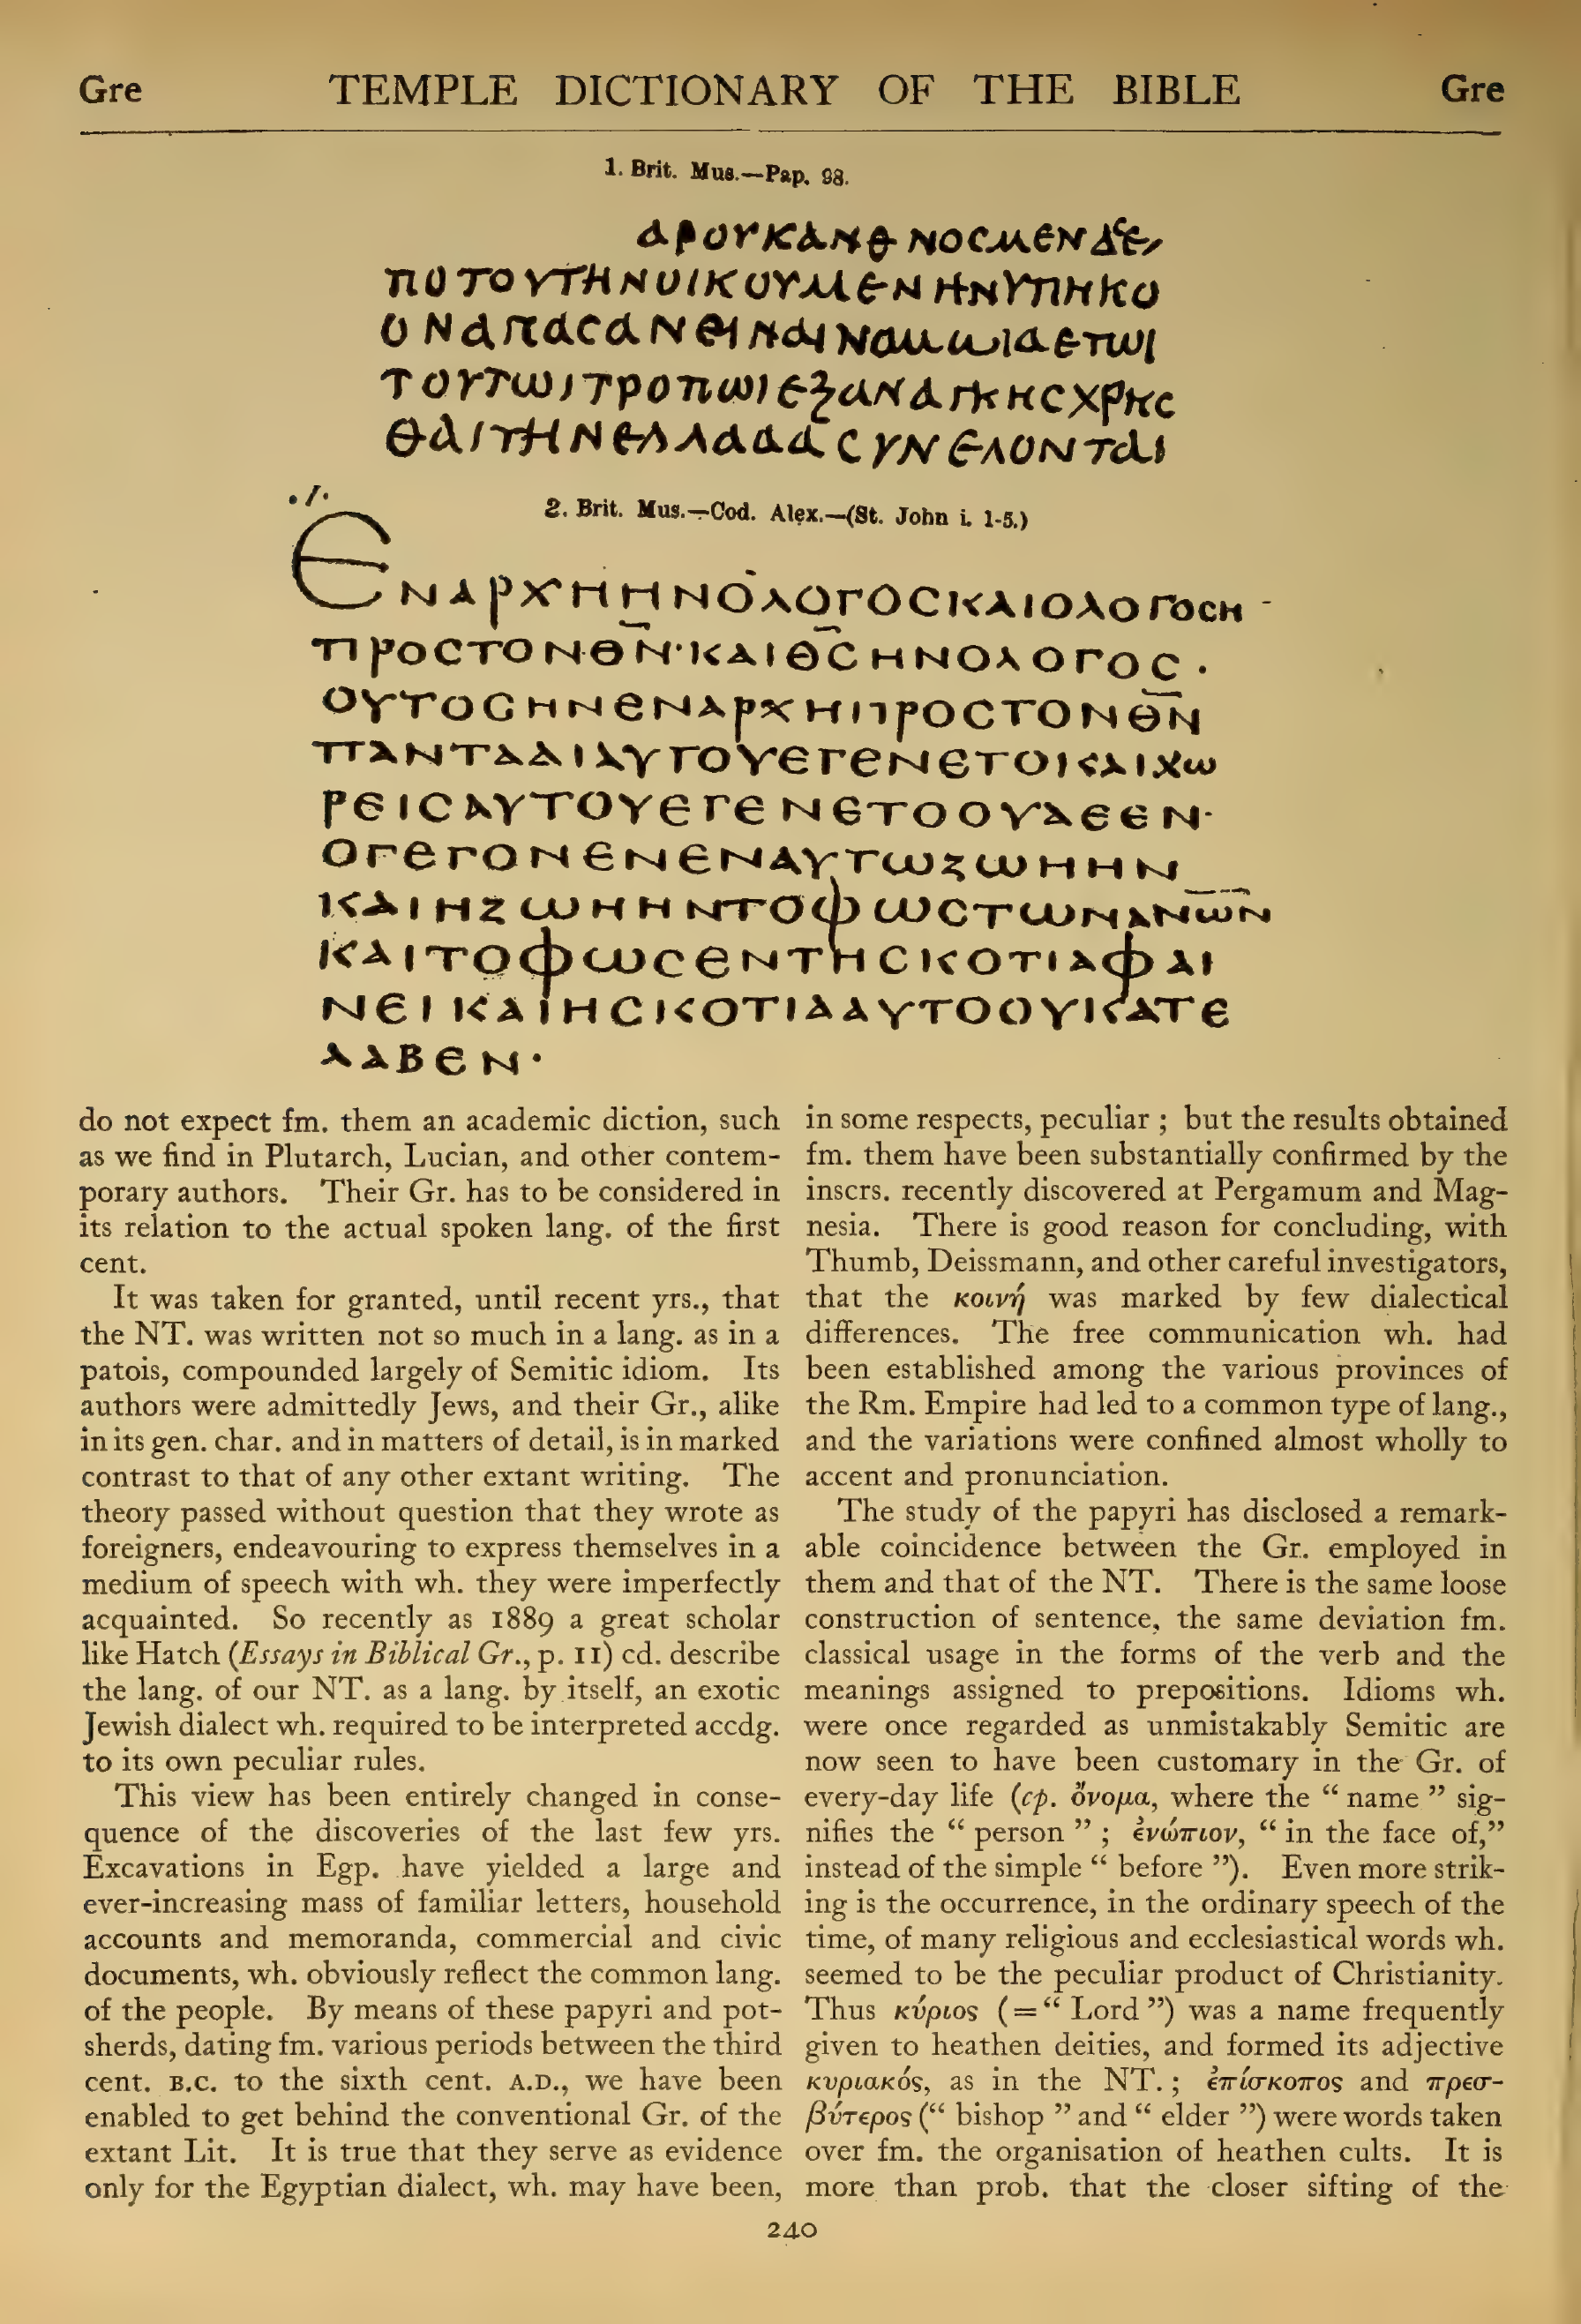 Gre TEMPLE DICTIONARY OF THE BIBLE Gre
1. Brit. Mus.—Pap. 98.
ΠΟΤΟΥΤΗΝΟΙΚΟΥΜΕΝΗΝΥΠΗΚΟ
ΤΟΥΤΩΙΤΡΟΠΩΙΕΞΑΝΑΓΚΗΣΧΡΗΣ
2. Brit. Mus.—Cod. Alex.—(St. John i. 1-5.)
ΕΝΑΡΧΗΗΝΟΛΟΓΟCΚΑΙΟΛΟΓΟCΗ
ΠΡΟCΤΟΝΘ̅Ν̅·ΚΑΙΘ̅C̅ΗΝΟΛΟΓΟC·
ΟΥΤΟCΗΝΕΝΑΡΧΗΠΡΟCΤΟΝΘ̅Ν̅
ΠΑΝΤΑΔΙΑΥΤΟΥΕΓΕΝΕΤΟΚΑΙΧΩ
ΡΕΙCΑΥΤΟΥΕΓΕΝΕΤΟΟΥΔΕΕΝ·
ΟΓΕΓΟΝΕΝΕΝΑΥΤΩΖΩΗΗΝ
ΚΑΙΗΖΩΗΗΝΤΟΦΩCΤΩΝΑΝ̅Ω̅Ν̅
ΚΑΙΤΟΦΩCΕΝΤΗCΚΟΤΙΑΦΑΙ
ΝΕΙΚΑΙΗCΚΟΤΙΑΑΥΤΟΟΥΚΑΤΕ
ΛΑΒΕΝ·
do not expect fm. them an academic diction, such
as we find in Plutarch, Lucian, and other contem-
porary authors. Their Gr. has to be considered in
its relation to the actual spoken lang. of the first
cent.
It was taken for granted, until recent yrs., that
the NT. was written not so much in a lang. as in a
patois, compounded largely of Semitic idiom. Its
authors were admittedly Jews, and their Gr., alike
in its gen. char. and in matters of detail, is in marked
contrast to that of any other extant writing. The
theory passed without question that they wrote as
foreigners, endeavouring to express themselves in a
medium of speech with wh. they were imperfectly
acquainted. So recently as 1889 a great scholar
like Hatch (Essays in Biblical Gr., p. 11) cd. describe
the lang. of our NT. as a lang. by itself, an exotic
Jewish dialect wh. required to be interpreted accdg.
to its own peculiar rules.
This view has been entirely changed in conse-
quence of the discoveries of the last few yrs.
Excavations in Egp. have yielded a large and
ever-increasing mass of familiar letters, household
accounts and memoranda, commercial and civic
documents, wh. obviously reflect the common lang.
of the people. By means of these papyri and pot-
sherds, dating fm. various periods between the third
cent. B.C. to the sixth cent. A.D., we have been
enabled to get behind the conventional Gr. of the
extant Lit. It is true that they serve as evidence
only for the Egyptian dialect, wh. may have been,
in some respects, peculiar ; but the results obtained
fm. them have been substantially confirmed by the
inscrs. recently discovered at Pergamum and Mag-
nesia. There is good reason for concluding, with
Thumb, Deissmann, and other careful investigators,
that the κοινή was marked by few dialectical
differences. The free communication wh. had
been established among the various provinces of
the Rm. Empire had led to a common type of lang.,
and the variations were confined almost wholly to
accent and pronunciation.
The study of the papyri has disclosed a remark-
able coincidence between the Gr. employed in
them and that of the NT. There is the same loose
construction of sentence, the same deviation fm.
classical usage in the forms of the verb and the
meanings assigned to prepositions. Idioms wh.
were once regarded as unmistakably Semitic are
now seen to have been customary in the Gr. of
every-day life (cp. ὄνομα, where the “ name ” sig-
nifies the “ person ” ; ἐνώπιον, “ in the face of,”
instead of the simple “ before ”). Even more strik-
ing is the occurrence, in the ordinary speech of the
time, of many religious and ecclesiastical words wh.
seemed to be the peculiar product of Christianity.
Thus κύριος (=“ Lord ”) was a name frequently
given to heathen deities, and formed its adjective
κυριακός, as in the NT. ; ἐπίσκοπος and πρεσ-
βύτερος (“ bishop ” and “ elder ”) were words taken
over fm. the organisation of heathen cults. It is
more than prob. that the closer sifting of the
240